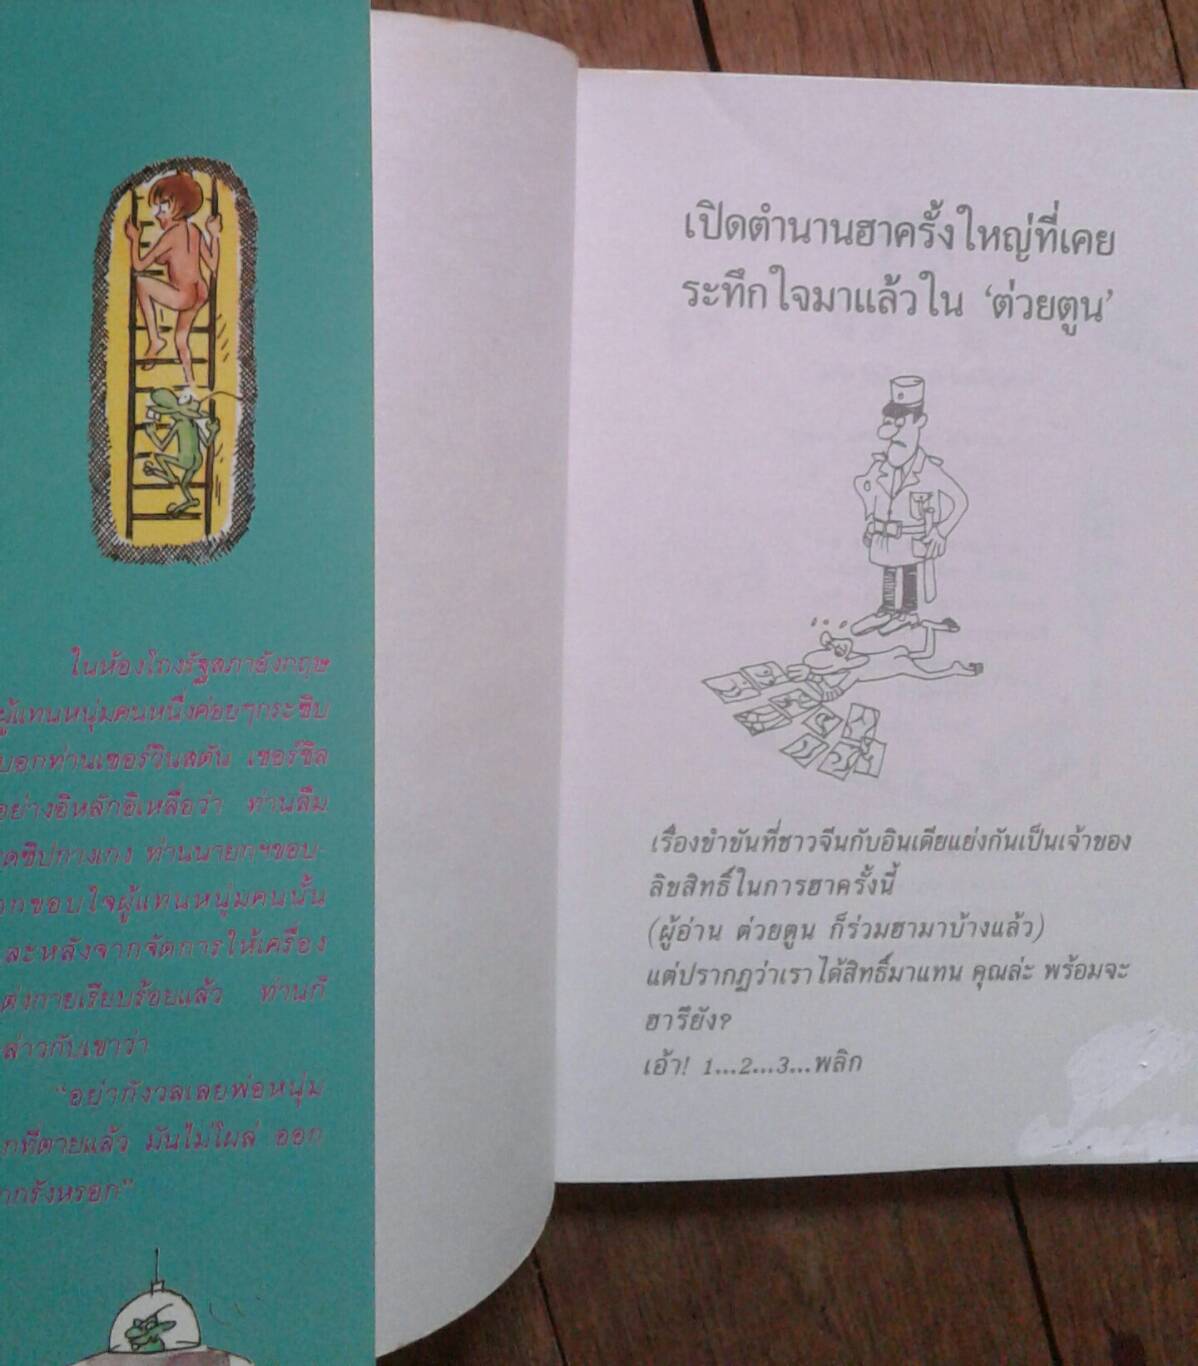 ในห้องโถงรัฐสภาอังกฤษ
ผู้แทนหนุ่มคนหนึ่งค่อยๆกระซิบ
บอกท่านเซอร์วินสตัน เชอร์ชิล
อย่างอิหลักอิเหลื่อว่า ท่านลืม
ดซิปกางเกง ท่านนายกฯขอบ-
อกขอบใจผู้แทนหนุ่มคนนั้น
ละหลังจากจัดการให้เครื่อง
แต่งกายเรียบร้อยแล้ว ท่านก็
ล่าวกับเขาว่า
"อย่ากังวลเลยพ่อหนุ่ม
กที่ตายแล้ว มันไม่โผล่ ออก
ากรังหรอก"
เปิดตำนานฮาครั้งใหญ่ที่เคย
ระทึกใจมาแล้วใน ‘ต่วยตูน’
เรื่องขำขันที่ชาวจีนกับอินเดียแย่งกันเป็นเจ้าของ
ลิขสิทธิ์ในการฮาครั้งนี้
(ผู้อ่าน ต่วยตูน ก็ร่วมฮามาบ้างแล้ว)
แต่ปรากฏว่าเราได้สิทธิ์มาแทน คุณล่ะ พร้อมจะ
ฮารึยัง?
เอ้า! 1...2...3...พลิก